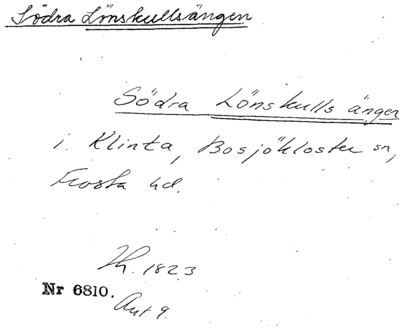 Södra Lönskullsängen
Södra Lönskulls ängen
i Klinta, Bosjökloster sn,
Frosta hd.
Th. 1823
Nr 6810.
Akt 9.